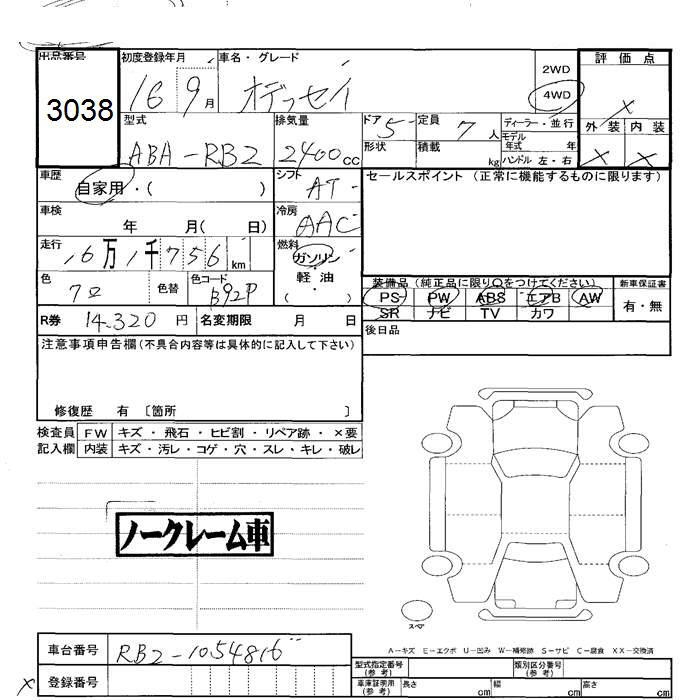 出品番号 初度登録年月 車名・グレード 2WD 評価点
3038 16 9月 オデッセイ 4WD ×
型式 排気量 ドア 5 定員 7人 ディーラー・並行 外装 内装
ABA-RB2 2400cc 形状 積載 kg モデル年式 年 × ×
ハンドル 左・右
車歴 シフト セールスポイント (正常に機能するものに限ります)
自家用・( ) AT
車検 冷房
年 月( 日) AAC
走行 燃料
16万1千756km ガソリン
色 色替 色コード 軽油 装備品 (純正品に限り○をつけてください) 新車保証書
B92P ・( ) PS PW ABS エアB AW 有・無
SR ナビ TV カワ
R券 14,320円 名変期限 月 日
後日品
注意事項申告欄(不具合内容等は具体的に記入して下さい)
修復歴 有 〔箇所 〕
検査員 FW キズ・飛石・ヒビ割・リペア跡・×要
記入欄 内装 キズ・汚レ・コゲ・穴・スレ・キレ・破レ
ノークレーム車
スペア
A-キズ E-エクボ U-凹み W-補修跡 S-サビ C-腐食 XX-交換済
車台番号 RB2-1054816
型式指定番号(参考) 類別区分番号(参考)
× 登録番号
車庫証明用(参考) 長さ cm 幅 cm 高さ cm